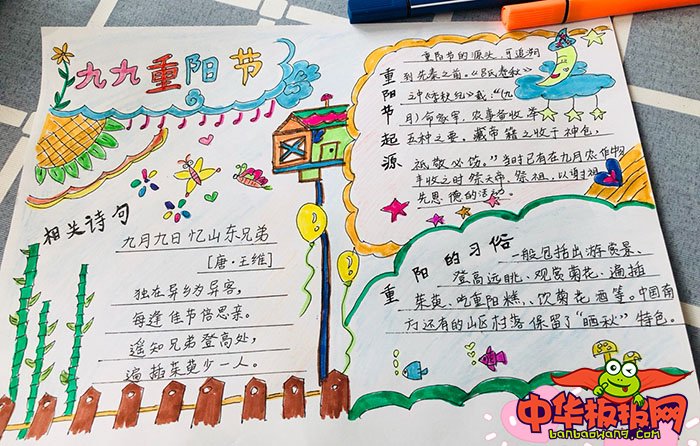 九九重阳节
相关诗句
九月九日忆山东兄弟
[唐·王维]
独在异乡为异客,
每逢佳节倍思亲。
遥知兄弟登高处,
遍插茱萸少一人。
重阳节起源
重阳节的源头,可追溯
到先秦之前。《吕氏春秋》
之中《季秋纪》载:“(九
月)命冢宰,农事备收,举
五种之要。藏帝籍之收于神仓,
祗敬必饬。”当时已有在九月农作物
丰收之时祭天帝、祭祖,以谢祖
先恩德的活动。
重阳的习俗
一般包括出游赏景、
登高远眺、观赏菊花、遍插
茱萸、吃重阳糕、饮菊花酒等。中国南
方还有的山区村落保留了“晒秋”特色。
中华板报网
banbaowang.com